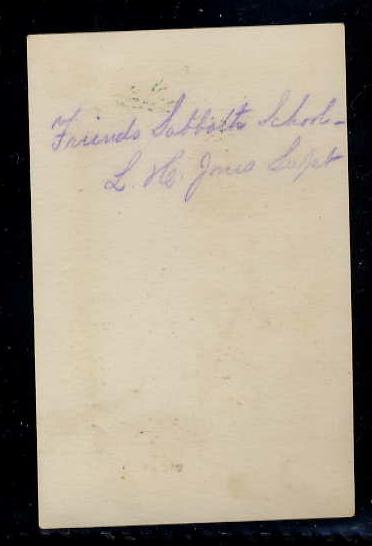 Friends Sabbath School -
L. H. Jones Supt